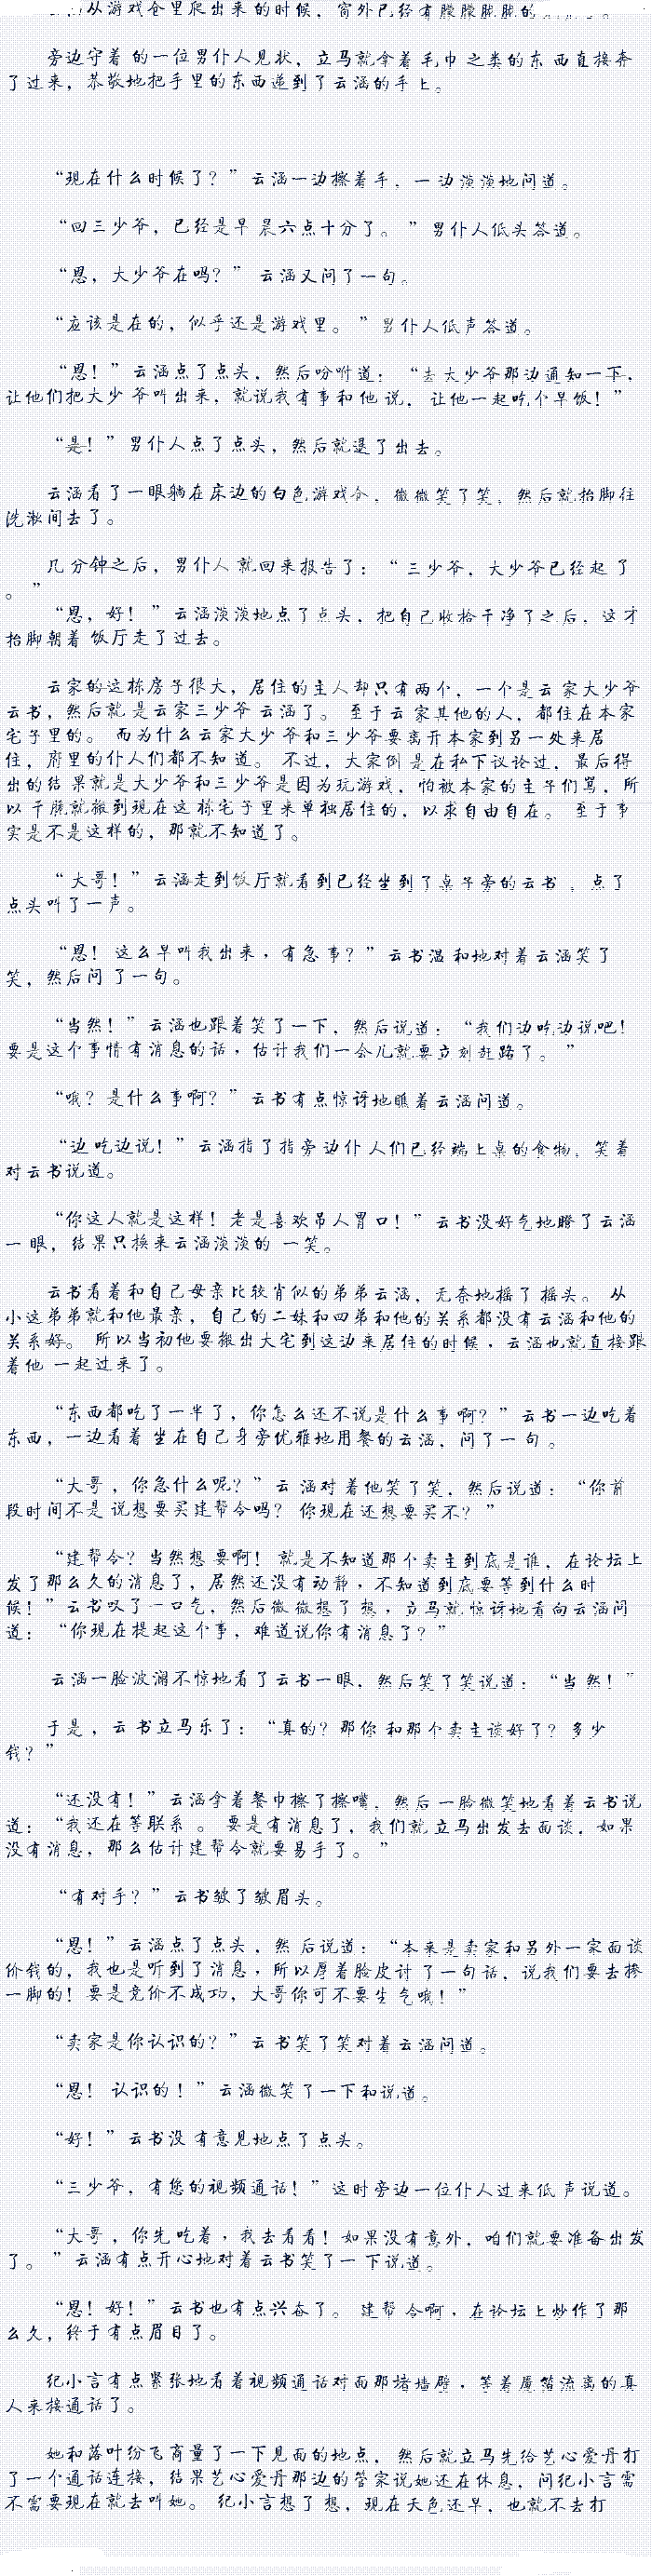 从游戏仓里爬出来的时候，窗外已经有朦朦胧胧的
旁边守着的一位男仆人见状，立马就拿着毛巾之类的东西直接奔
了过来，恭敬地把手里的东西递到了云涵的手上。
“现在什么时候了？”云涵一边擦着手，一边淡淡地问道。
“回三少爷，已经是早晨六点十分了。”男仆人低头答道。
“恩，大少爷在吗？”云涵又问了一句。
“应该是在的，似乎还是游戏里。”男仆人低声答道。
“恩！”云涵点了点头，然后吩咐道：“去大少爷那边通知一下，
让他们把大少爷叫出来，就说我有事和他说，让他一起吃个早饭！”
“是！”男仆人点了点头，然后就退了出去。
云涵看了一眼躺在床边的白色游戏仓，微微笑了笑，然后就抬脚往
洗漱间去了。
几分钟之后，男仆人就回来报告了：“三少爷，大少爷已经起了
。”
“恩，好！”云涵淡淡地点了点头，把自己收拾干净了之后，这才
抬脚朝着饭厅走了过去。
云家的这栋房子很大，居住的主人却只有两个，一个是云家大少爷
云书，然后就是云家三少爷云涵了。至于云家其他的人，都住在本家
宅子里的。而为什么云家大少爷和三少爷要离开本家到另一处来居
住，府里的仆人们都不知道。不过，大家倒是在私下议论过，最后得
出的结果就是大少爷和三少爷是因为玩游戏，怕被本家的主子们骂，所
以干脆就搬到现在这栋宅子里来单独居住的，以求自由自在。至于事
实是不是这样的，那就不知道了。
“大哥！”云涵走到饭厅就看到已经坐到了桌子旁的云书，点了
点头叫了一声。
“恩！这么早叫我出来，有急事？”云书温和地对着云涵笑了
笑，然后问了一句。
“当然！”云涵也跟着笑了一下，然后说道：“我们边吃边说吧！
要是这个事情有消息的话，估计我们一会儿就要立刻赶路了。”
“哦？是什么事啊？”云书有点惊讶地瞧着云涵问道。
“边吃边说！”云涵指了指旁边仆人们已经端上桌的食物，笑着
对云书说道。
“你这人就是这样！老是喜欢吊人胃口！”云书没好气地瞪了云涵
一眼，结果只换来云涵淡淡的一笑。
云书看着和自己母亲比较肖似的弟弟云涵，无奈地摇了摇头。从
小这弟弟就和他最亲，自己的二妹和四弟和他的关系都没有云涵和他的
关系好。所以当初他要搬出大宅到这边来居住的时候，云涵也就直接跟
着他一起过来了。
“东西都吃了一半了，你怎么还不说是什么事啊？”云书一边吃着
东西，一边看着坐在自己身旁优雅地用餐的云涵，问了一句。
“大哥，你急什么呢？”云涵对着他笑了笑，然后说道：“你前
段时间不是说想要买建帮令吗？你现在还想要买不？”
“建帮令？当然想要啊！就是不知道那个卖主到底是谁，在论坛上
发了那么久的消息了，居然还没有动静，不知道到底要等到什么时
候！”云书叹了一口气，然后微微想了想，立马就惊讶地看向云涵问
道：“你现在提起这个事，难道说你有消息了？”
云涵一脸波澜不惊地看了云书一眼，然后笑了笑说道：“当然！”
于是，云书立马乐了：“真的？那你和那个卖主谈好了？多少
钱？”
“还没有！”云涵拿着餐巾擦了擦嘴，然后一脸微笑地看着云书说
道：“我还在等联系。要是有消息了，我们就立马出发去面谈，如果
没有消息，那么估计建帮令就要易手了。”
“有对手？”云书皱了皱眉头。
“恩！”云涵点了点头，然后说道：“本来是卖家和另外一家面谈
价钱的，我也是听到了消息，所以厚着脸皮讨了一句话，说我们要去掺
一脚的！要是竞价不成功，大哥你可不要生气哦！”
“卖家是你认识的？”云书笑了笑对着云涵问道。
“恩！认识的！”云涵微笑了一下和说道。
“好！”云书没有意见地点了点头。
“三少爷，有您的视频通话！”这时旁边一位仆人过来低声说道。
“大哥，你先吃着，我去看看！如果没有意外，咱们就要准备出发
了。”云涵有点开心地对着云书笑了一下说道。
“恩！好！”云书也有点兴奋了。建帮令啊，在论坛上炒作了那
么久，终于有点眉目了。
纪小言有点紧张地看着视频通话对面那堵墙壁，等着魇笛流离的真
人来接通话了。
她和落叶纷飞商量了一下见面的地点，然后就立马先给艺心爱丹打
了一个通话连接，结果艺心爱丹那边的管家说她还在休息，问纪小言需
不需要现在就去叫她。纪小言想了想，现在天色还早，也就不去打